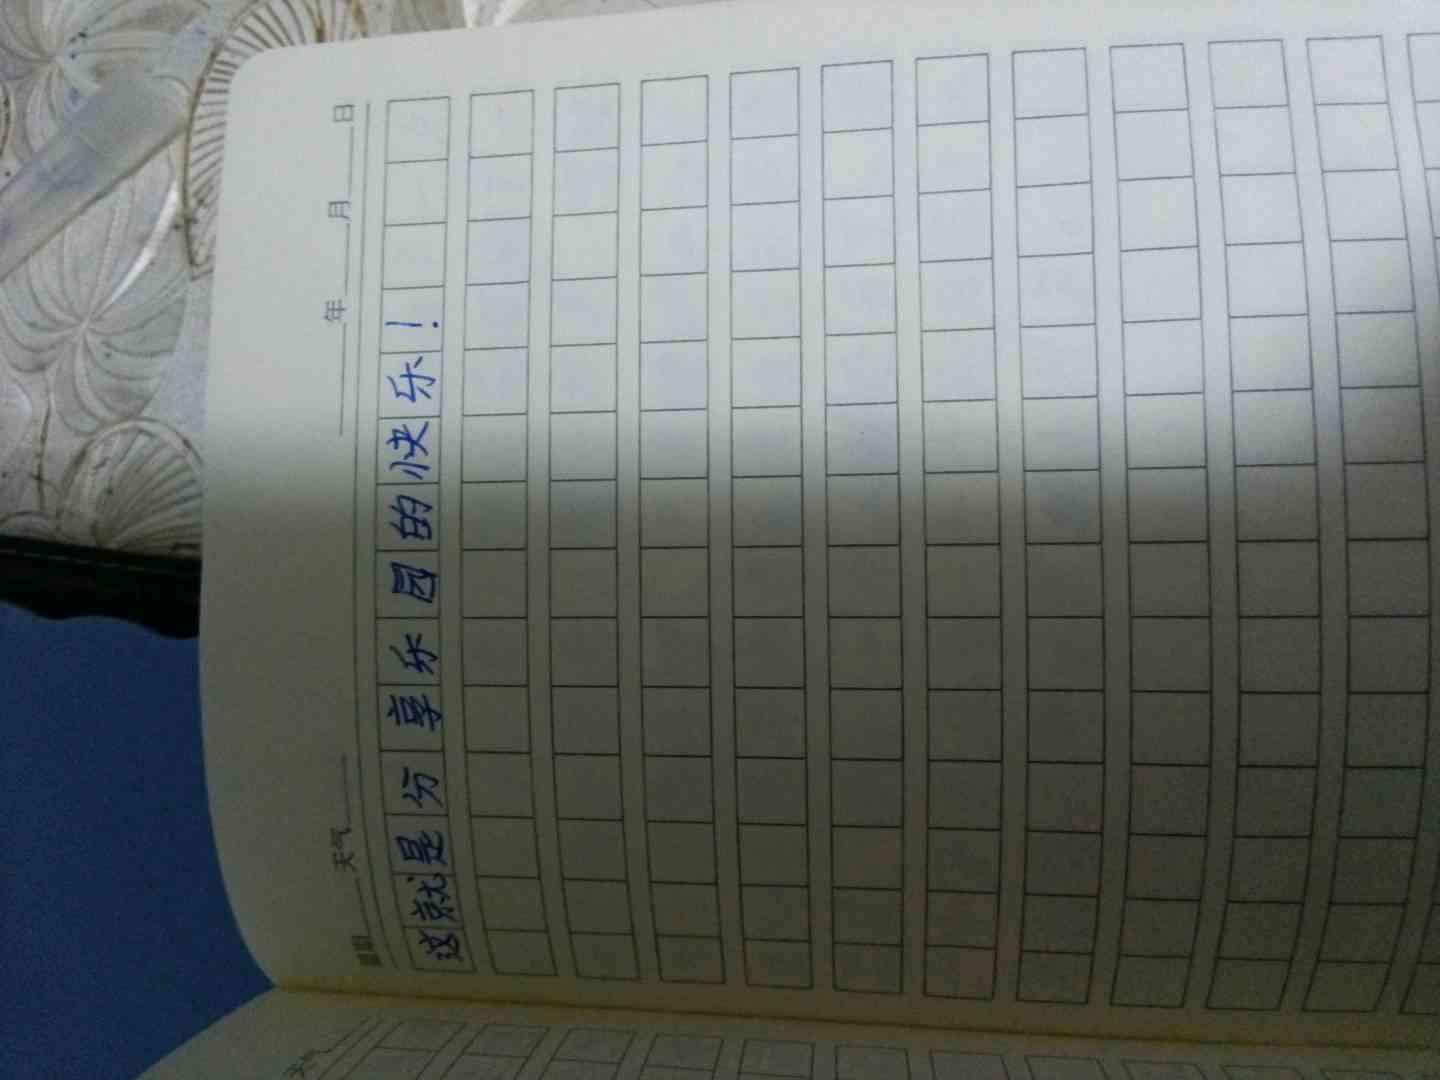 星期 天气 年 月 日
这就是分享乐园的快乐!
天气